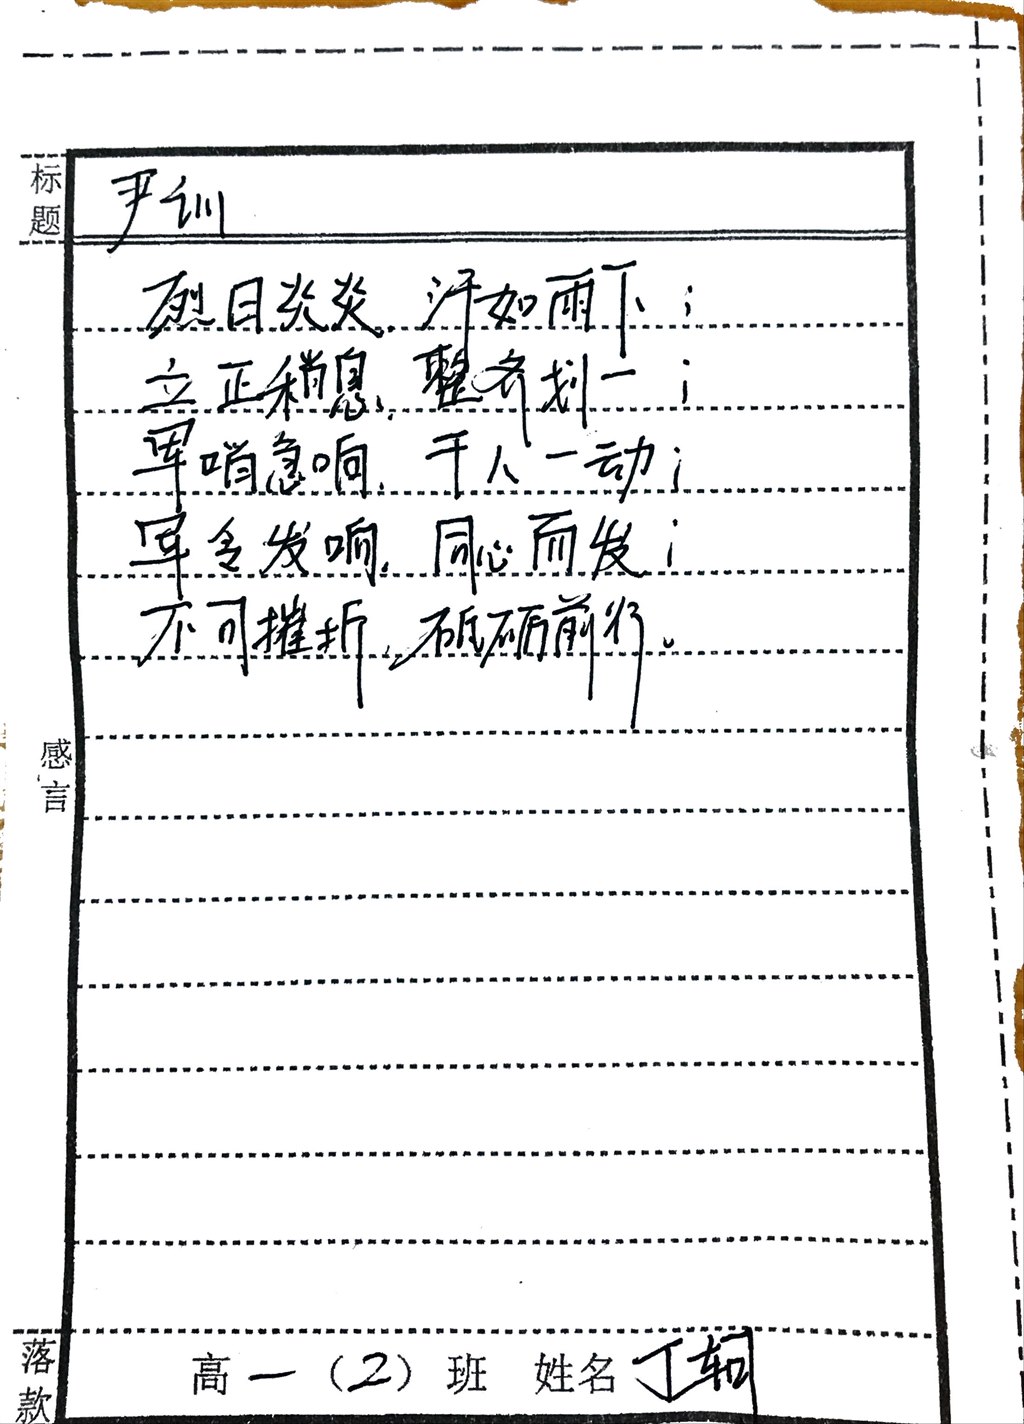 标题 军训
烈日炎炎，汗如雨下；
立正稍息，整齐划一；
军哨急响，千人一动；
军令发响，同心而发；
不可摧折，砥砺前行。
感言
落款 高一（2）班 姓名 丁